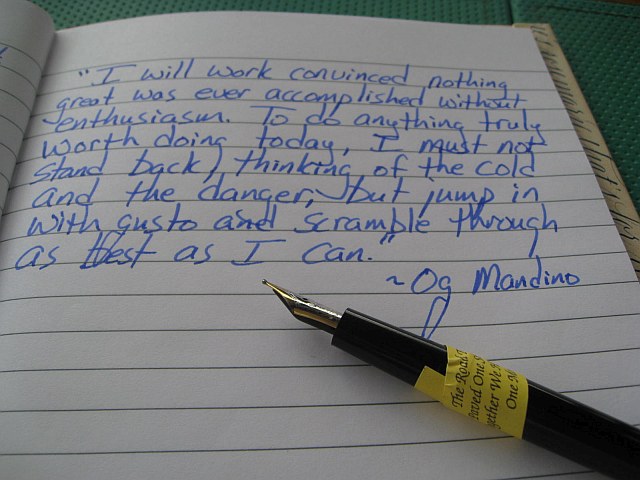 "I will work convinced nothing
great was ever accomplished without
enthusiasm. To do anything truly
worth doing today, I must not
stand back, thinking of the cold
and the danger, but jump in
with gusto and scramble through
as best as I can."
~Og Mandino
The Road
Paved One
Together We
One M